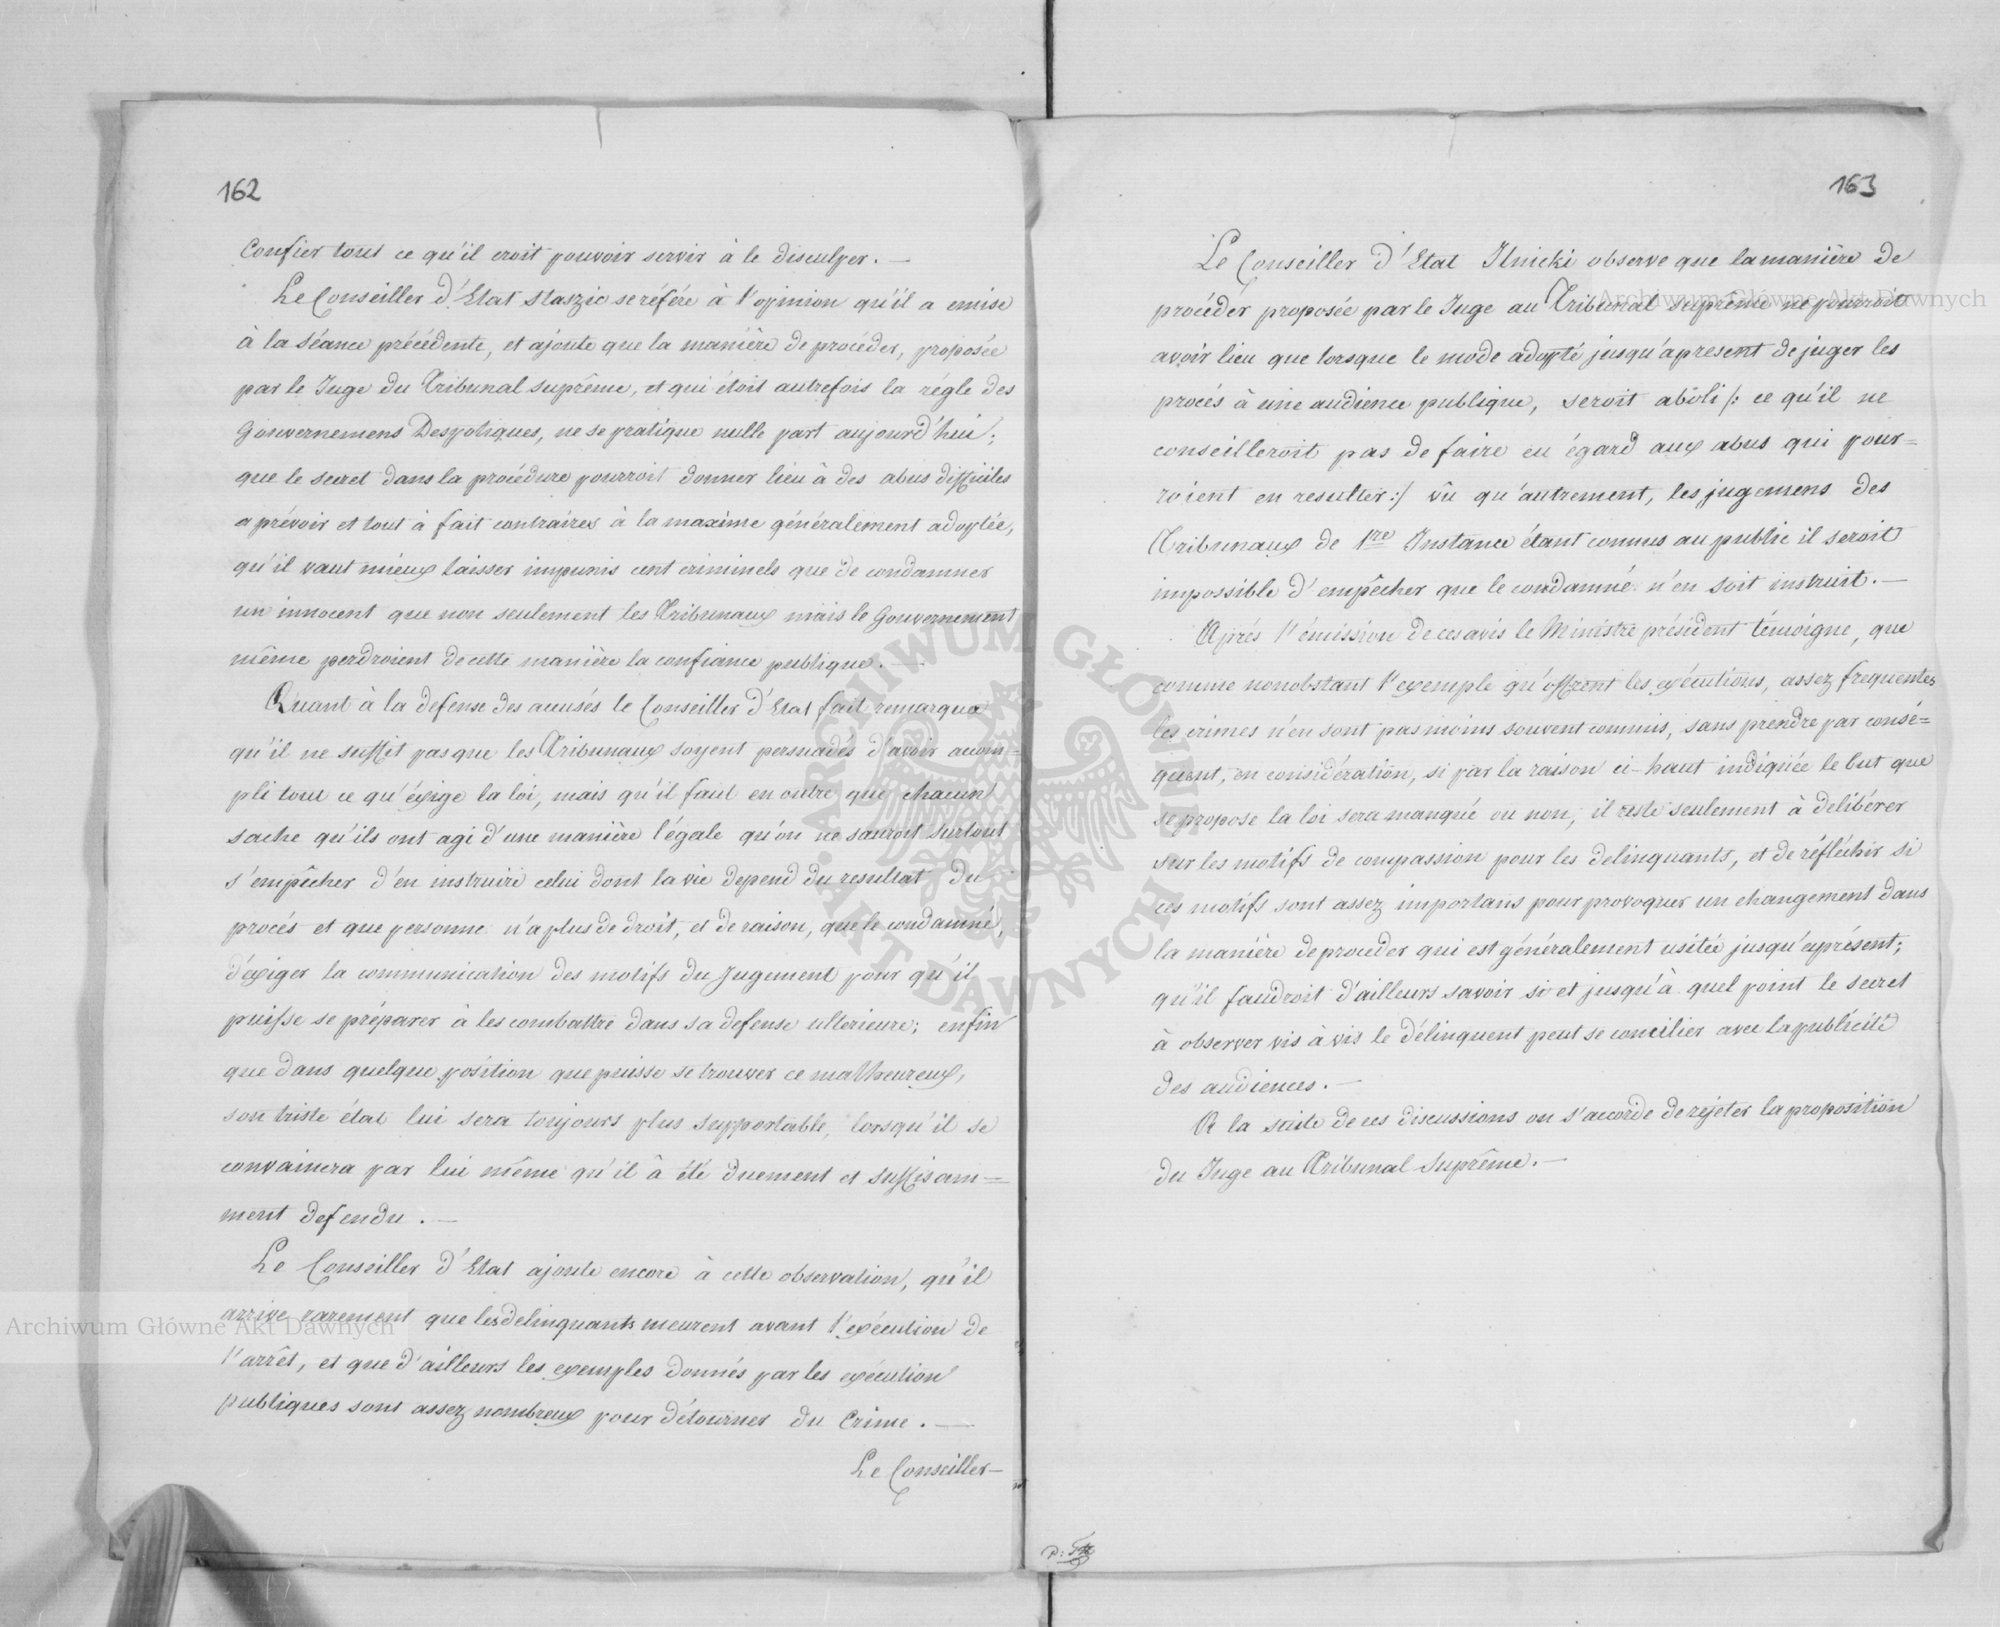 162
confier tout ce qu'il croit pouvoir servir à le disculper. —
Le Conseiller d'Etat Staszic se réfère à l'opinion qu'il a emise
à la séance précédente, et ajoute que la manière de procéder, proposée
par le Juge du Tribunal suprême, et qui étoit autrefois la régle des
Gouvernemens Despotiques, ne se pratique nulle part aujourd'hui;
que le secret dans la procédure pourroit donner lieu à des abus difficiles
a prévoir et tout à fait contraires à la maxime généralement adoptée,
qu'il vaut mieux laisser impunis cent criminels que de condamner
un innocent que non seulement les Tribunaux mais le Gouvernement
même perdroient de cette manière la confiance publique. —
Quant à la defense des accusés le Conseiller d'Etat fait remarquer
qu'il ne suffit pas que les Tribunaux soyent persuadés d'avoir accom=
pli tout ce qu'éxige la loi, mais qu'il faut en outre que chacun
sache qu'ils ont agi d'une manière légale qu'on ne sauroit surtout
s'empêcher d'en instruire celui dont la vie depend du resultat du
procés et que personne n'a plus de droit, et de raison, que le condamné,
d'exiger la communication des motifs du Jugement pour qu'il
puisse se préparer à les combattre dans sa defense ulterieure; enfin
que dans quelque position que puisse se trouver ce malheureux,
son triste état lui sera toujours plus supportable, lorsqu'il se
convaincra par lui même qu'il à été duement et suffisam=
ment defendu. —
Le Conseiller d'Etat ajoute encore à cette observation, qu'il
arrive rarement que les delinquants meurent avant l'exécution de
l'arrêt, et que d'ailleurs les exemples donnés par les exécution
publiques sont assez nombreux pour détourner du Crime. —
Le Conseiller —
163
Le Conseiller d'Etat Ilnicki observe que la manière de
procéder proposée par le Juge au Tribunal suprême ne pourroit
avoir lieu que lorsque le mode adopté jusqu'apresent de juger les
procés à une audience publique, seroit aboli /: ce qu'il ne
conseilleroit pas de faire eu égard aux abus qui pour=
roient en resulter :/ vû qu'autrement, les jugemens des
Tribunaux de 1re Instance étant connus au public il seroit
impossible d'empêcher que le condamné n'en soit instruit. —
Aprés l'émission de ces avis le Ministre président témoigne, que
comme nonobstant l'exemple qu'offrent les exécutions, assez frequentes
les crimes n'en sont pas moins souvent commis, sans prendre par consé=
quent, en considération, si par la raison ci-haut indiquée le but que
se propose la loi sera manqué ou non, il reste seulement à delibérer
sur les motifs de compassion pour les delinquants, et de réfléchir si
ces motifs sont assez importans pour provoquer un changement dans
la manière de proceder qui est généralement usitée jusqu'aprésent;
qu'il faudroit d'ailleurs savoir si et jusqu'à quel point le secret
à observer vis à vis le délinquent peut se concilier avec la publicité
des audiences. —
A la suite de ces discussions on s'accorde de rejeter la proposition
du Juge au Tribunal Suprême. —
Archiwum Główne Akt Dawnych
Archiwum Główne Akt Dawnych
ARCHIWUM GŁÓWNE AKT DAWNYCH